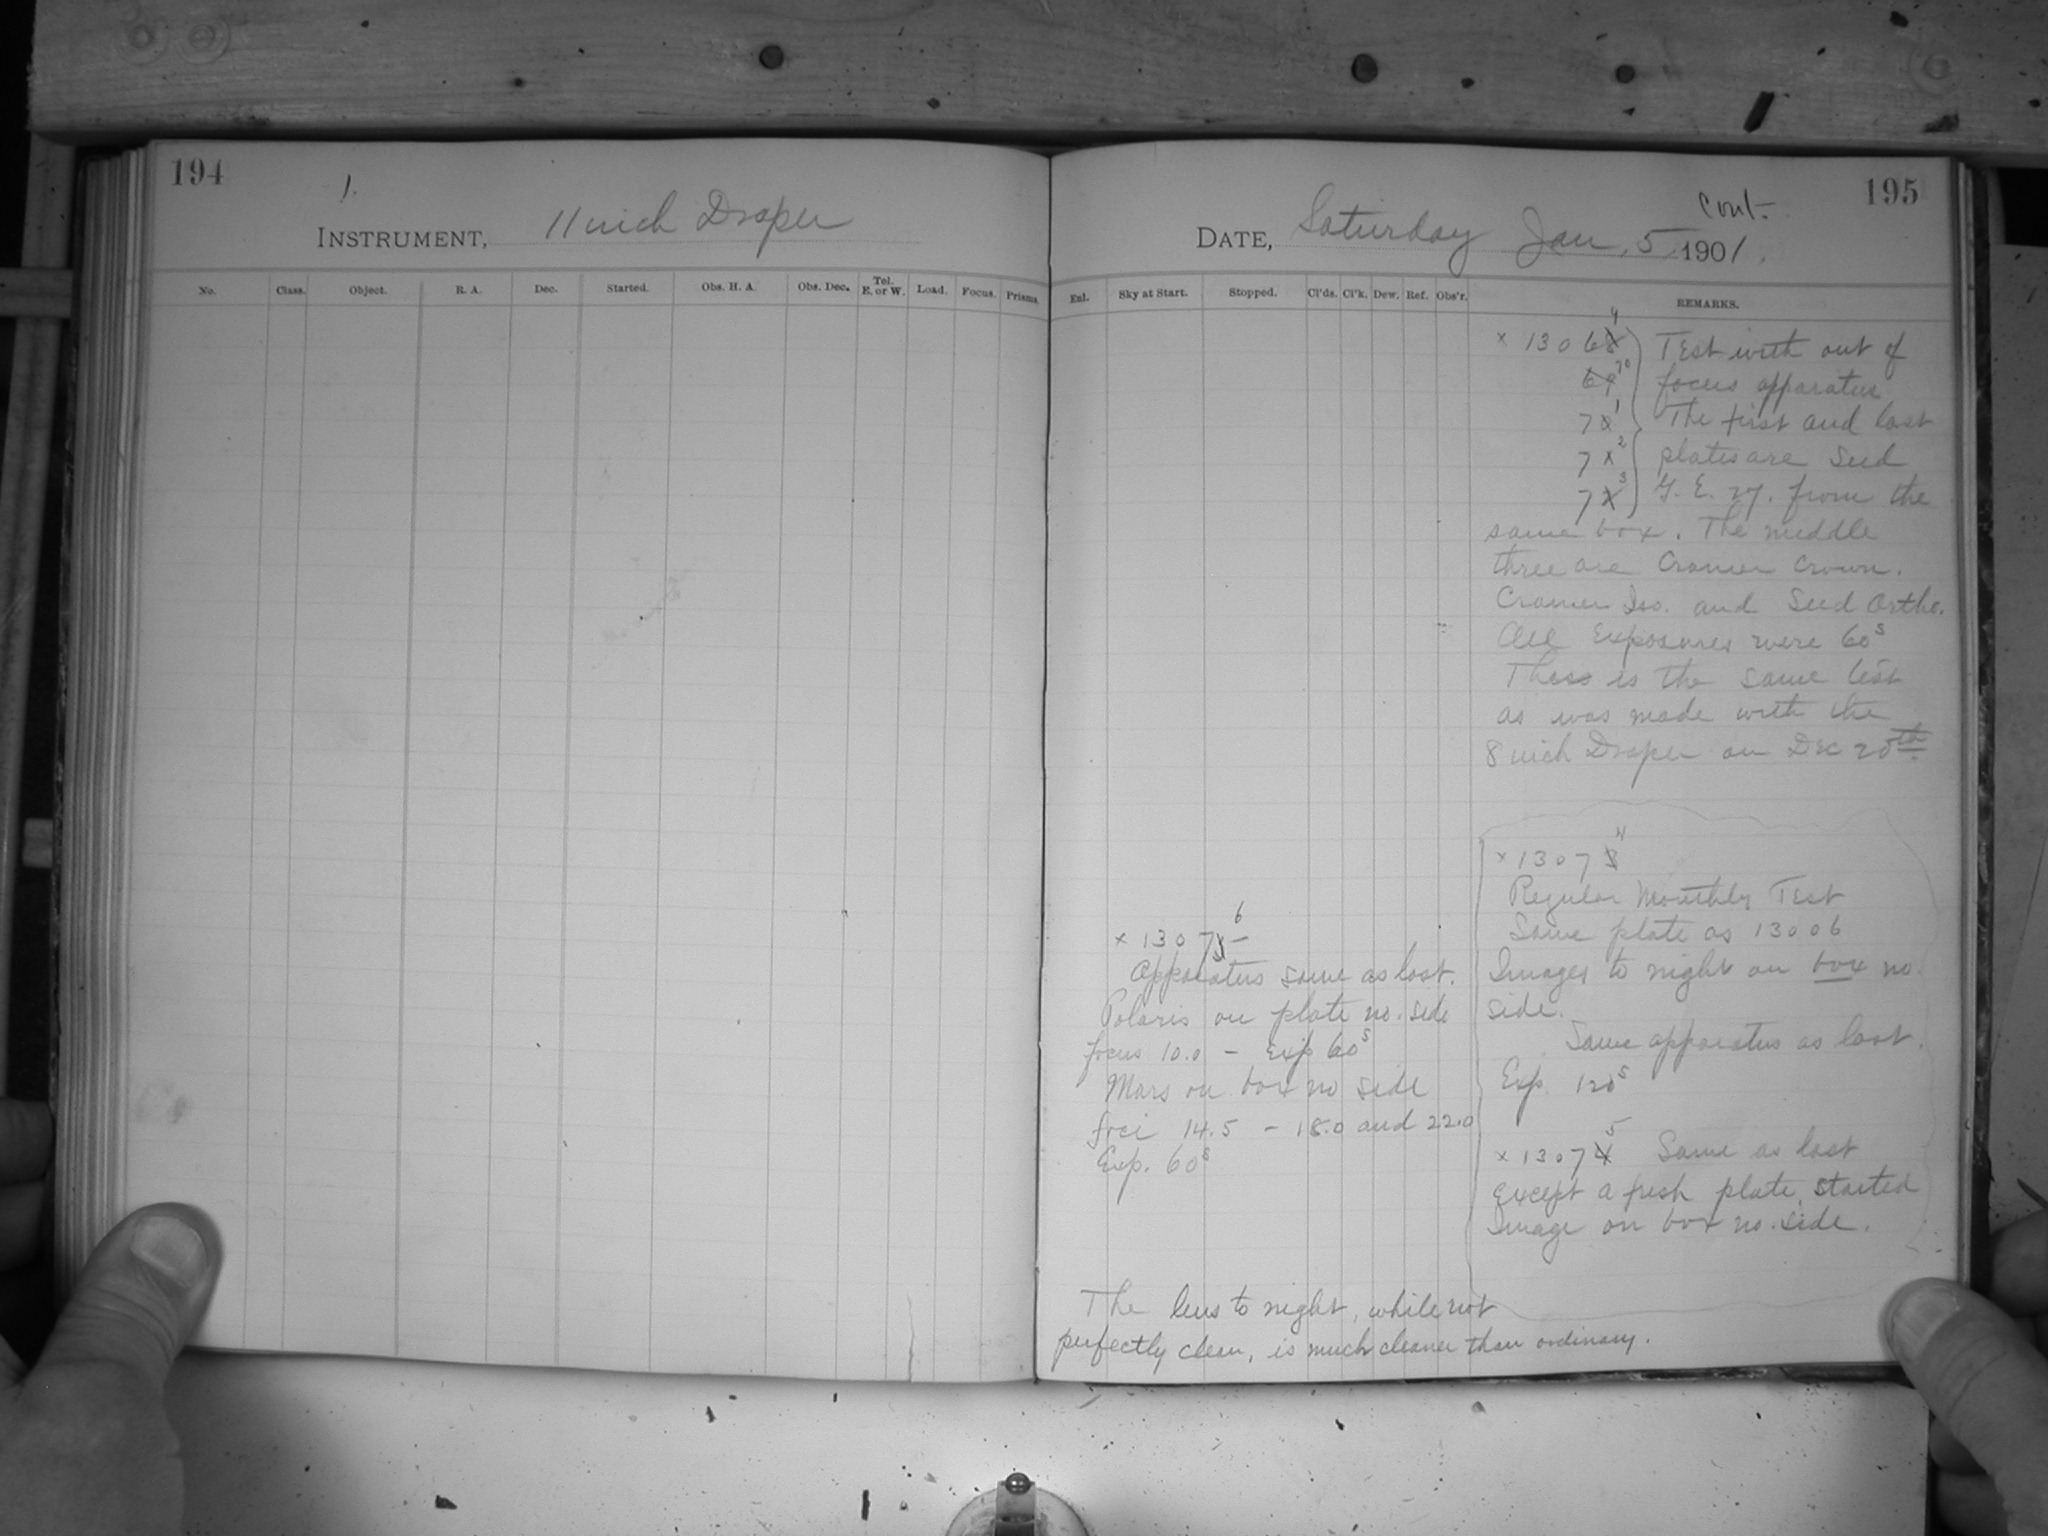 194
1.
INSTRUMENT, 11 inch Draper
No. Class. Object. R. A. Dec. Started. Obs. H. A. Obs. Dec. Tel. E. or W. Load. Focus. Prisms.
195
cont.
DATE, Saturday Jan. 5, 1901.
Enl. Sky at Start. Stopped. Cl'ds. Cl'k. Dew. Ref. Obs'r. REMARKS.
x 13068 9 Test with out of
69 70 focus apparatus
70 1 The first and last
7 2 plates are Seed
7 3 G. E. 27. from the
same box. The middle
three are Cramer Crown.
Cramer Iso. and Seed Ortho.
All Exposures were 60s
This is the same test
as was made with the
8 inch Draper on Dec 20th.
x 13073 4
Regular Monthly Test
Same plate as 13006
Images to night on box no.
side.
Same apparatus as last.
Exp. 120s
x 13074 5 Same as last
Except a fresh plate, started
Image on box no. side.
x 13075 6
Apparatus same as last.
Polaris on plate no. side
focus 10.0 - Exp 60s
Mars on box no side
foci 14.5 - 18.0 and 22.0
Exp. 60s
The lens to night, while not
perfectly clean, is much cleaner than ordinary.